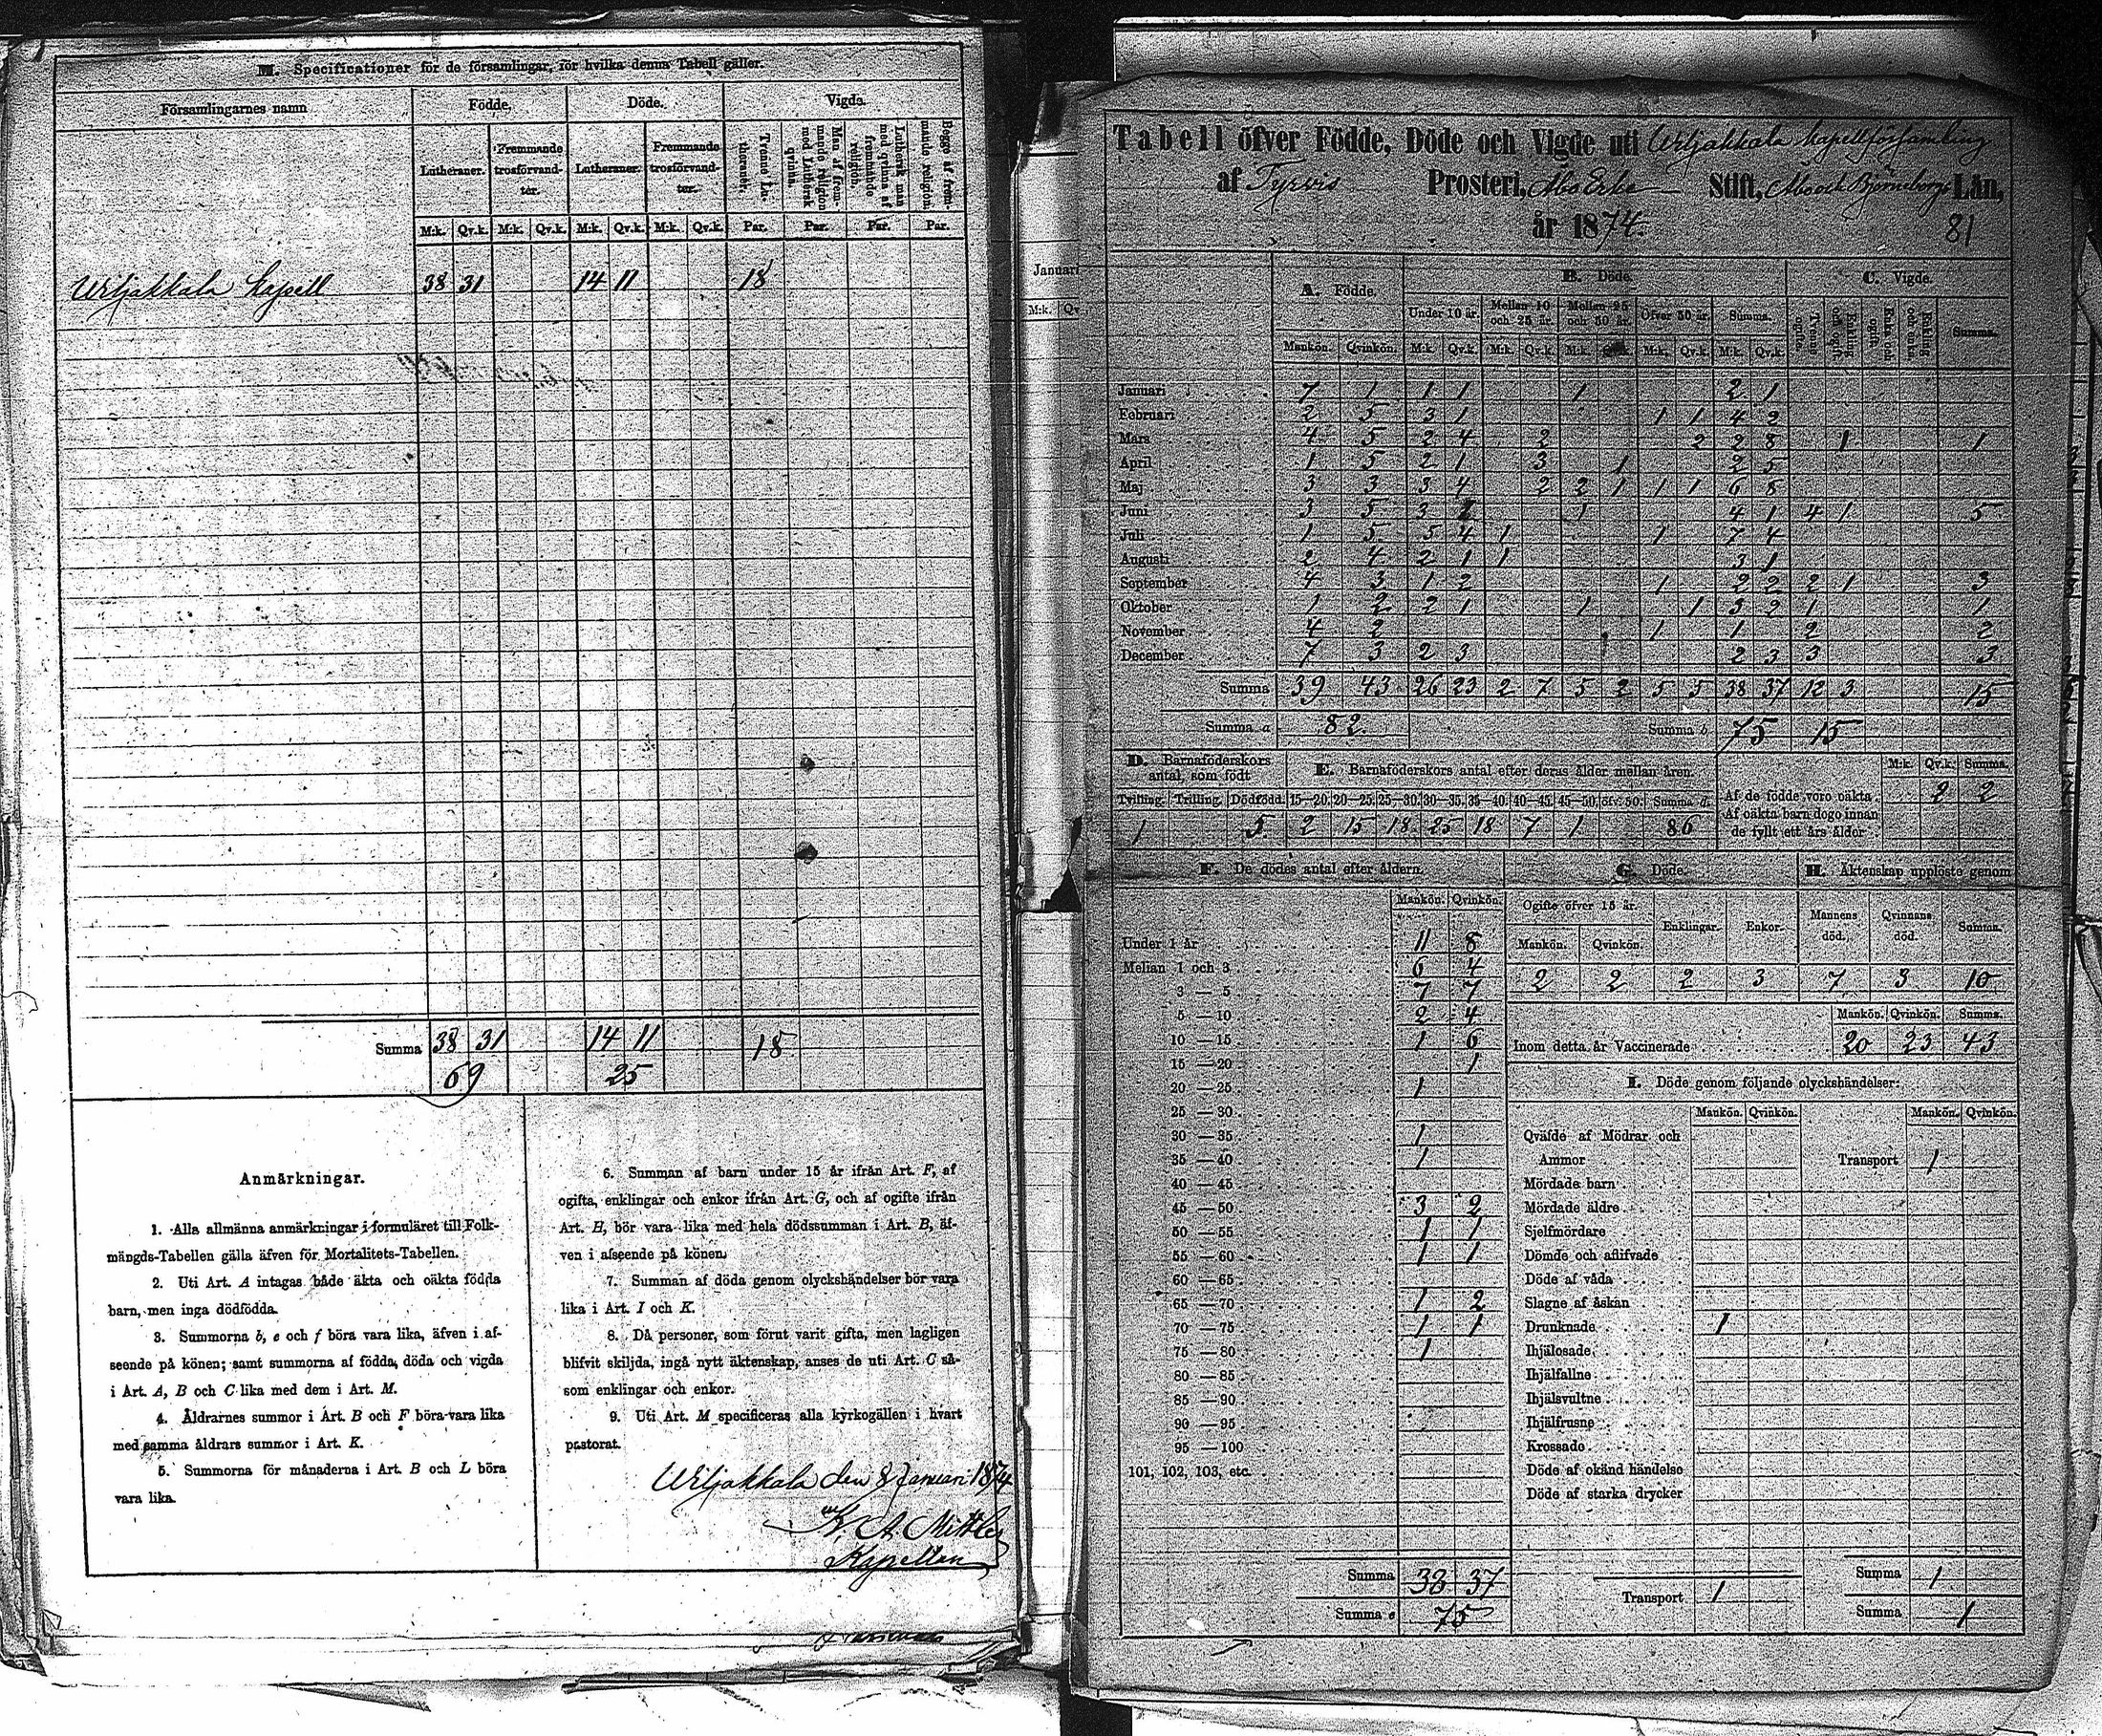 M. Specificationer för de församlingar, för hvilka denna Tabell gäller.
Församlingarnes namn Födde. Döde. Vigda.
Lutheraner. Fremmande trosförvandter. Lutheraner. Fremmande trosförvandter. Trenne Lutheraner. Man af fremmande religion med Luthersk qvinna. Luthersk man med qvinna af fremmande religion. Begge af fremmande religion.
M:k. Qv.k. M:k. Qv.k. M:k. Qv.k. M:k. Qv.k. Par. Par. Par. Par.
Wiljakkala Kapell 38 31 14 11 18
Summa 38 31 14 11 18
69 25
Anmärkningar.
1. Alla allmänna anmärkningar i formuläret till Folk-
mängds-Tabellen gälla äfven för Mortalitets-Tabellen.
2. Uti Art. A intagas både äkta och oäkta födda
barn, men inga dödfödda.
3. Summorna b, e och f böra vara lika, äfven i af-
seende på könen; samt summorna af födda, döda och vigda
i Art. A, B och C lika med dem i Art. M.
4. Åldrarnes summor i Art. B och F böra vara lika
med samma åldrars summor i Art. K.
5. Summorna för månaderna i Art. B och L böra
vara lika.
6. Summan af barn under 15 år ifrån Art. F, af
ogifta, enklingar och enkor ifrån Art. G, och af ogifte ifrån
Art. H, bör vara lika med hela dödssumman i Art. B, äf-
ven i afseende på könen.
7. Summan af döda genom olyckshändelser bör vara
lika i Art. I och K.
8. Då personer, som förut varit gifta, men lagligen
blifvit skiljda, ingå nytt äktenskap, anses de uti Art. C så-
som enklingar och enkor.
9. Uti Art. M specificeras alla kyrkogällen i hvart
pastorat.
Wiljakkala den 8 Januari 1874
K. A. Mittler
Kapellan
Januari
M:k. Qv
Tabell öfver Födde, Döde och Vigde uti Wiljakkala Kapellförsamling
af Tyrvis Prosteri, Åbo Erke Stift, Åbo och Björneborgs Län,
år 1874.
81
A. Födde. B. Döde. C. Vigde.
Under 10 år. Mellan 10 och 25 år. Mellan 25 och 50 år. Öfver 50 år. Summa. Tvenne ogifta. Enkling och ogift. Enka och ogift. Enkling och enka. Summa.
Mankön. Qvinkön. M:k. Qv.k. M:k. Qv.k. M:k. M:k. Qv.k. M:k. Qv.k.
Januari 7 1 1 1 1 2 1
Februari 2 5 3 1 1 1 4 2
Mars 4 5 2 4 2 2 2 8 1 1
April 1 5 2 1 3 1 2 5
Maj 3 3 3 4 2 2 1 1 1 6 8
Juni 3 5 3 1 4 1 4 1 5
Juli 1 5 5 4 1 1 7 4
Augusti 2 4 2 1 1 3 1
September 4 3 1 2 1 2 2 2 1 3
Oktober 1 2 2 1 1 1 3 2 1 1
November 4 2 1 1 2 2
December 7 3 2 3 2 3 3 3
Summa 39 43 26 23 2 7 5 2 5 5 38 37 12 3 15
Summa a 82. Summa b 75 15
D. Barnaföderskors antal, som födt
E. Barnaföderskors antal efter deras ålder mellan åren.
M:k. Qv.k. Summa.
Tvilling. Trilling. Dödfödd. 15—20. 20—25. 25—30. 30—35. 35—40. 40—45. 45—50. öfv. 50. Summa d.
1 5 2 15 18 25 18 7 1 86
Af de födde voro oäkta 2 2
Af oäkta barn dogo innan de fyllt ett års ålder
F. De dödes antal efter åldern.
Mankön. Qvinkön.
Under 1 år 11 8
Mellan 1 och 3 6 4
3 — 5 7 7
5 — 10 2 4
10 — 15 1 6
15 — 20 1
20 — 25 1
25 — 30
30 — 35 1
35 — 40 1
40 — 45
45 — 50 3 2
50 — 55 1 1
55 — 60 1 1
60 — 65
65 — 70 1 2
70 — 75 1 1
75 — 80 1
80 — 85
85 — 90
90 — 95
95 — 100
101, 102, 103, etc.
Summa 38 37
Summa e 75
G. Döde.
Ogifte öfver 15 år. Enklingar. Enkor.
Mankön. Qvinkön.
2 2 2 3
H. Äktenskap upplöste genom
Mannens död. Qvinnans död. Summa.
7 3 10
Mankön. Qvinkön. Summa.
Inom detta år Vaccinerade 20 23 43
I. Döde genom följande olyckshändelser:
Mankön. Qvinkön. Mankön. Qvinkön.
Qväfde af Mödrar och
Ammor Transport 1
Mördade barn
Mördade äldre
Sjelfmördare
Dömde och aflifvade
Döde af våda
Slagne af åskan
Drunknade 1
Ihjälosade
Ihjälfallne
Ihjälsvultne
Ihjälfrusne
Krossade
Döde af okänd händelse
Döde af starka drycker
Transport 1
Summa 1
Summa 1